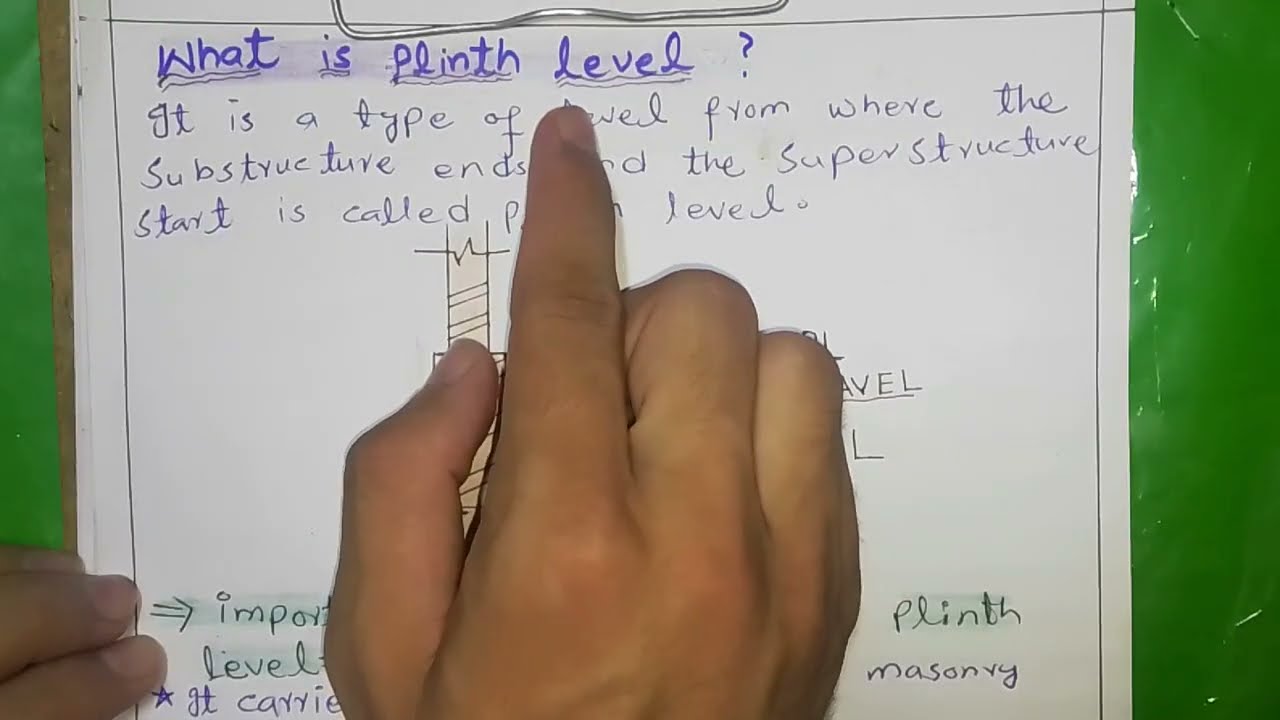 What is Plinth level ?
It is a type of level from where the
Substructure ends and the Superstructure
Start is called level.
PL
L
⇒ Plinth
level
masonry
★ It